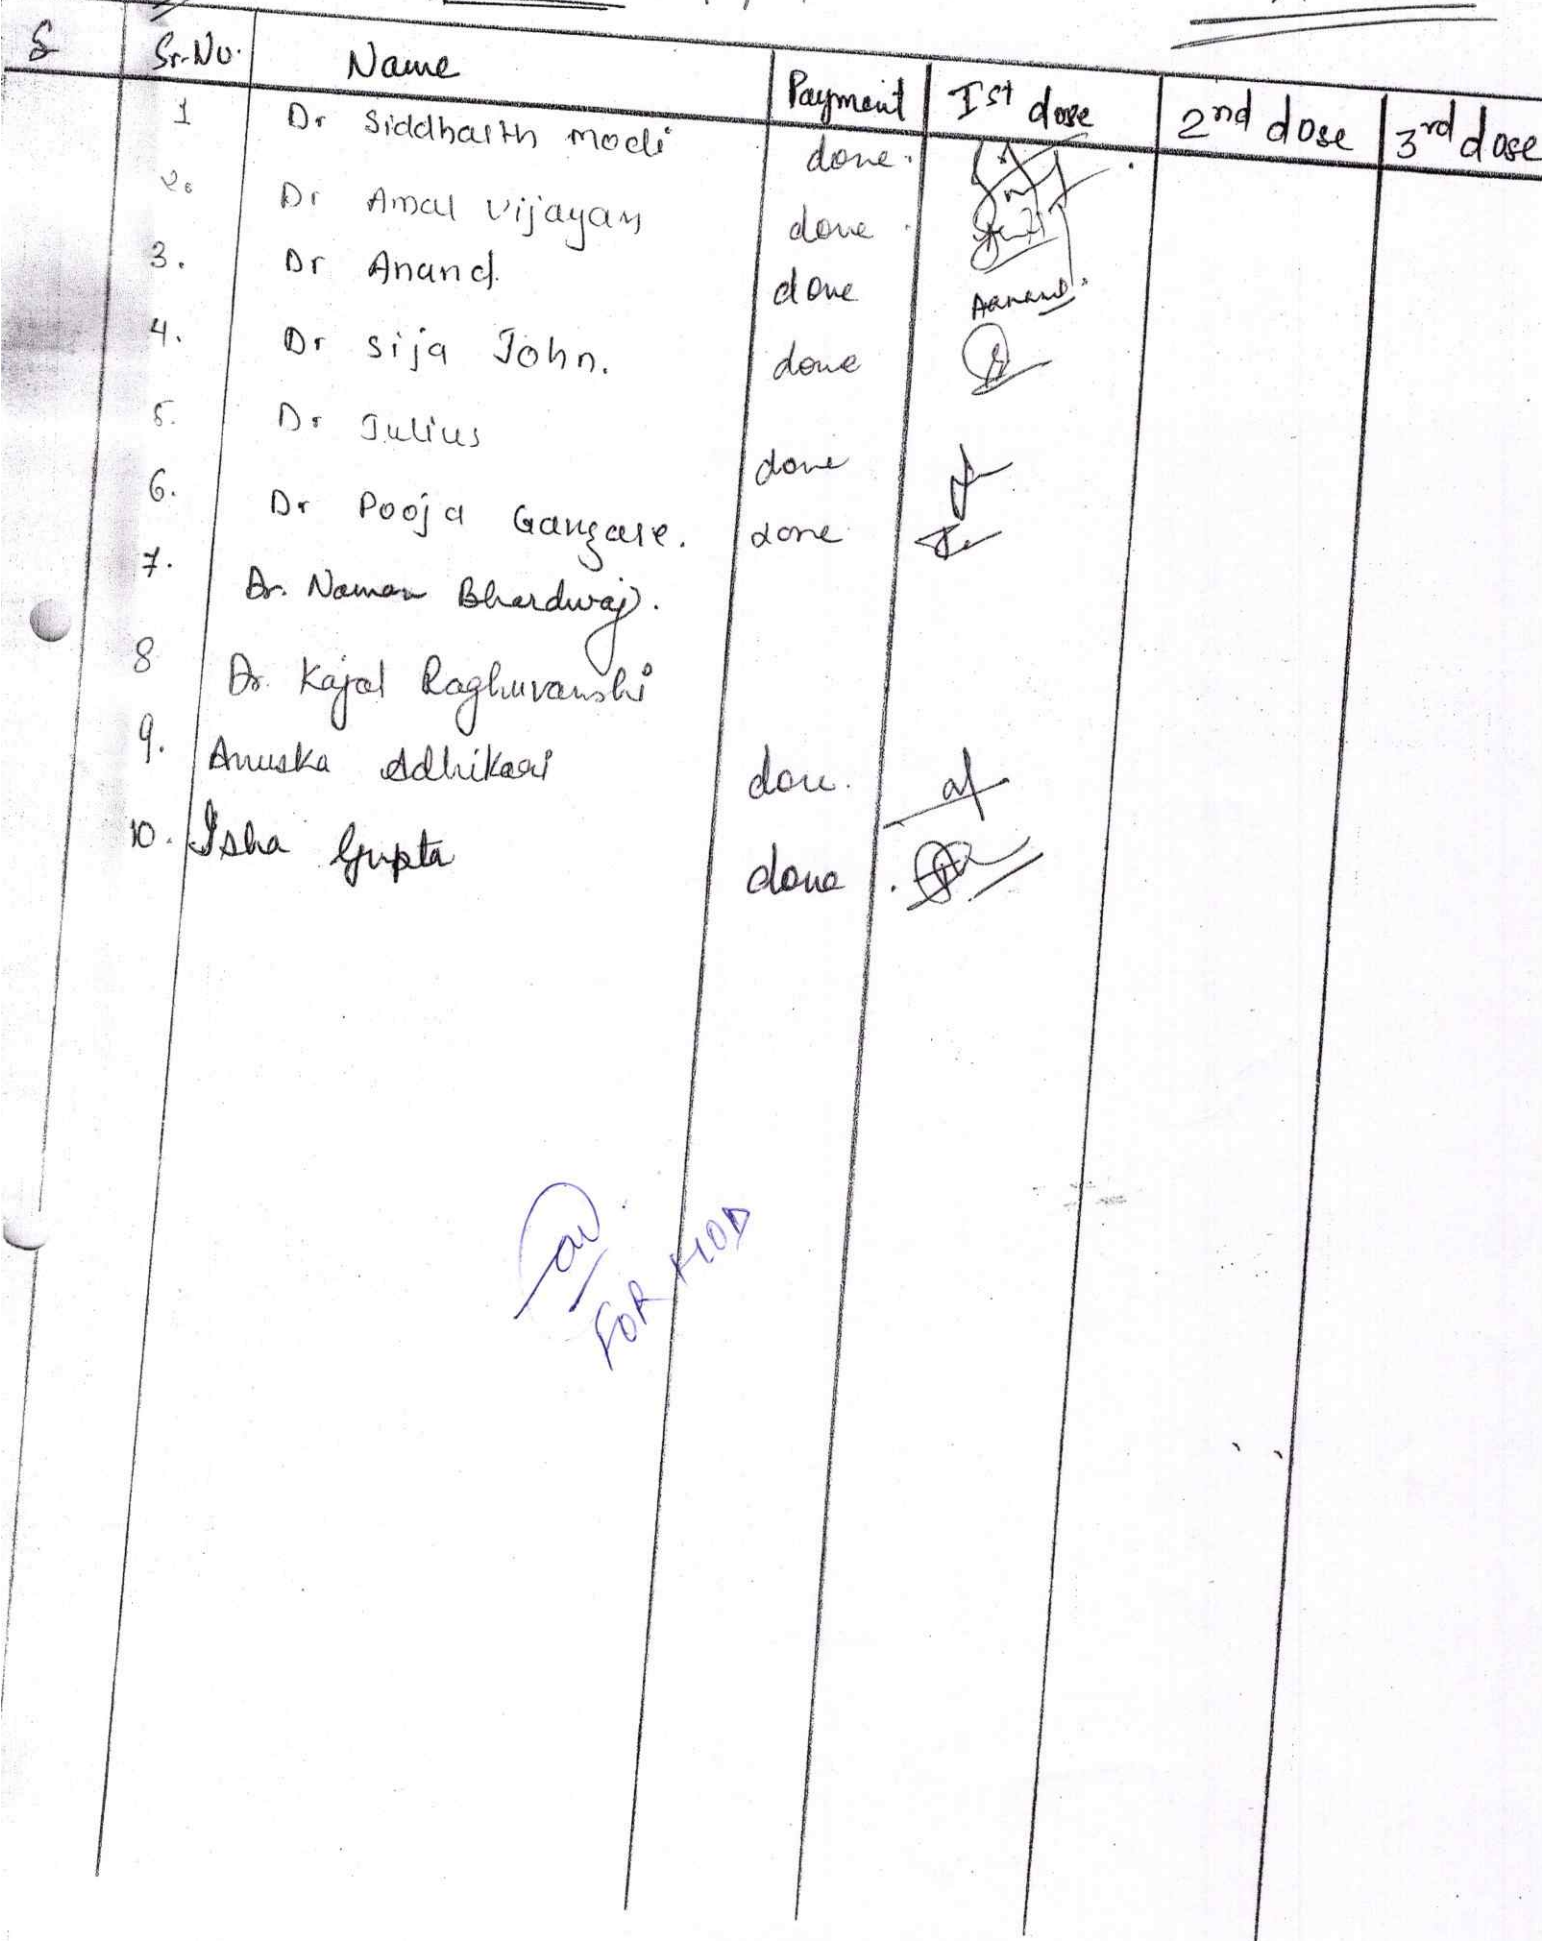 Sr.No. Name Payment Ist dose 2nd dose 3rd dose
1 Dr Siddharth modi done.
2. Dr Amal Vijayan done.
3. Dr Anand. done Aanand.
4. Dr Sija John. done
5. Dr Julius done
6. Dr Pooja Gangare. done
7. Dr. Naman Bhardwaj.
8 Dr. Kajal Raghuvanshi
9. Anuska Adhikari done.
10. Isha Gupta done.
FOR HOD